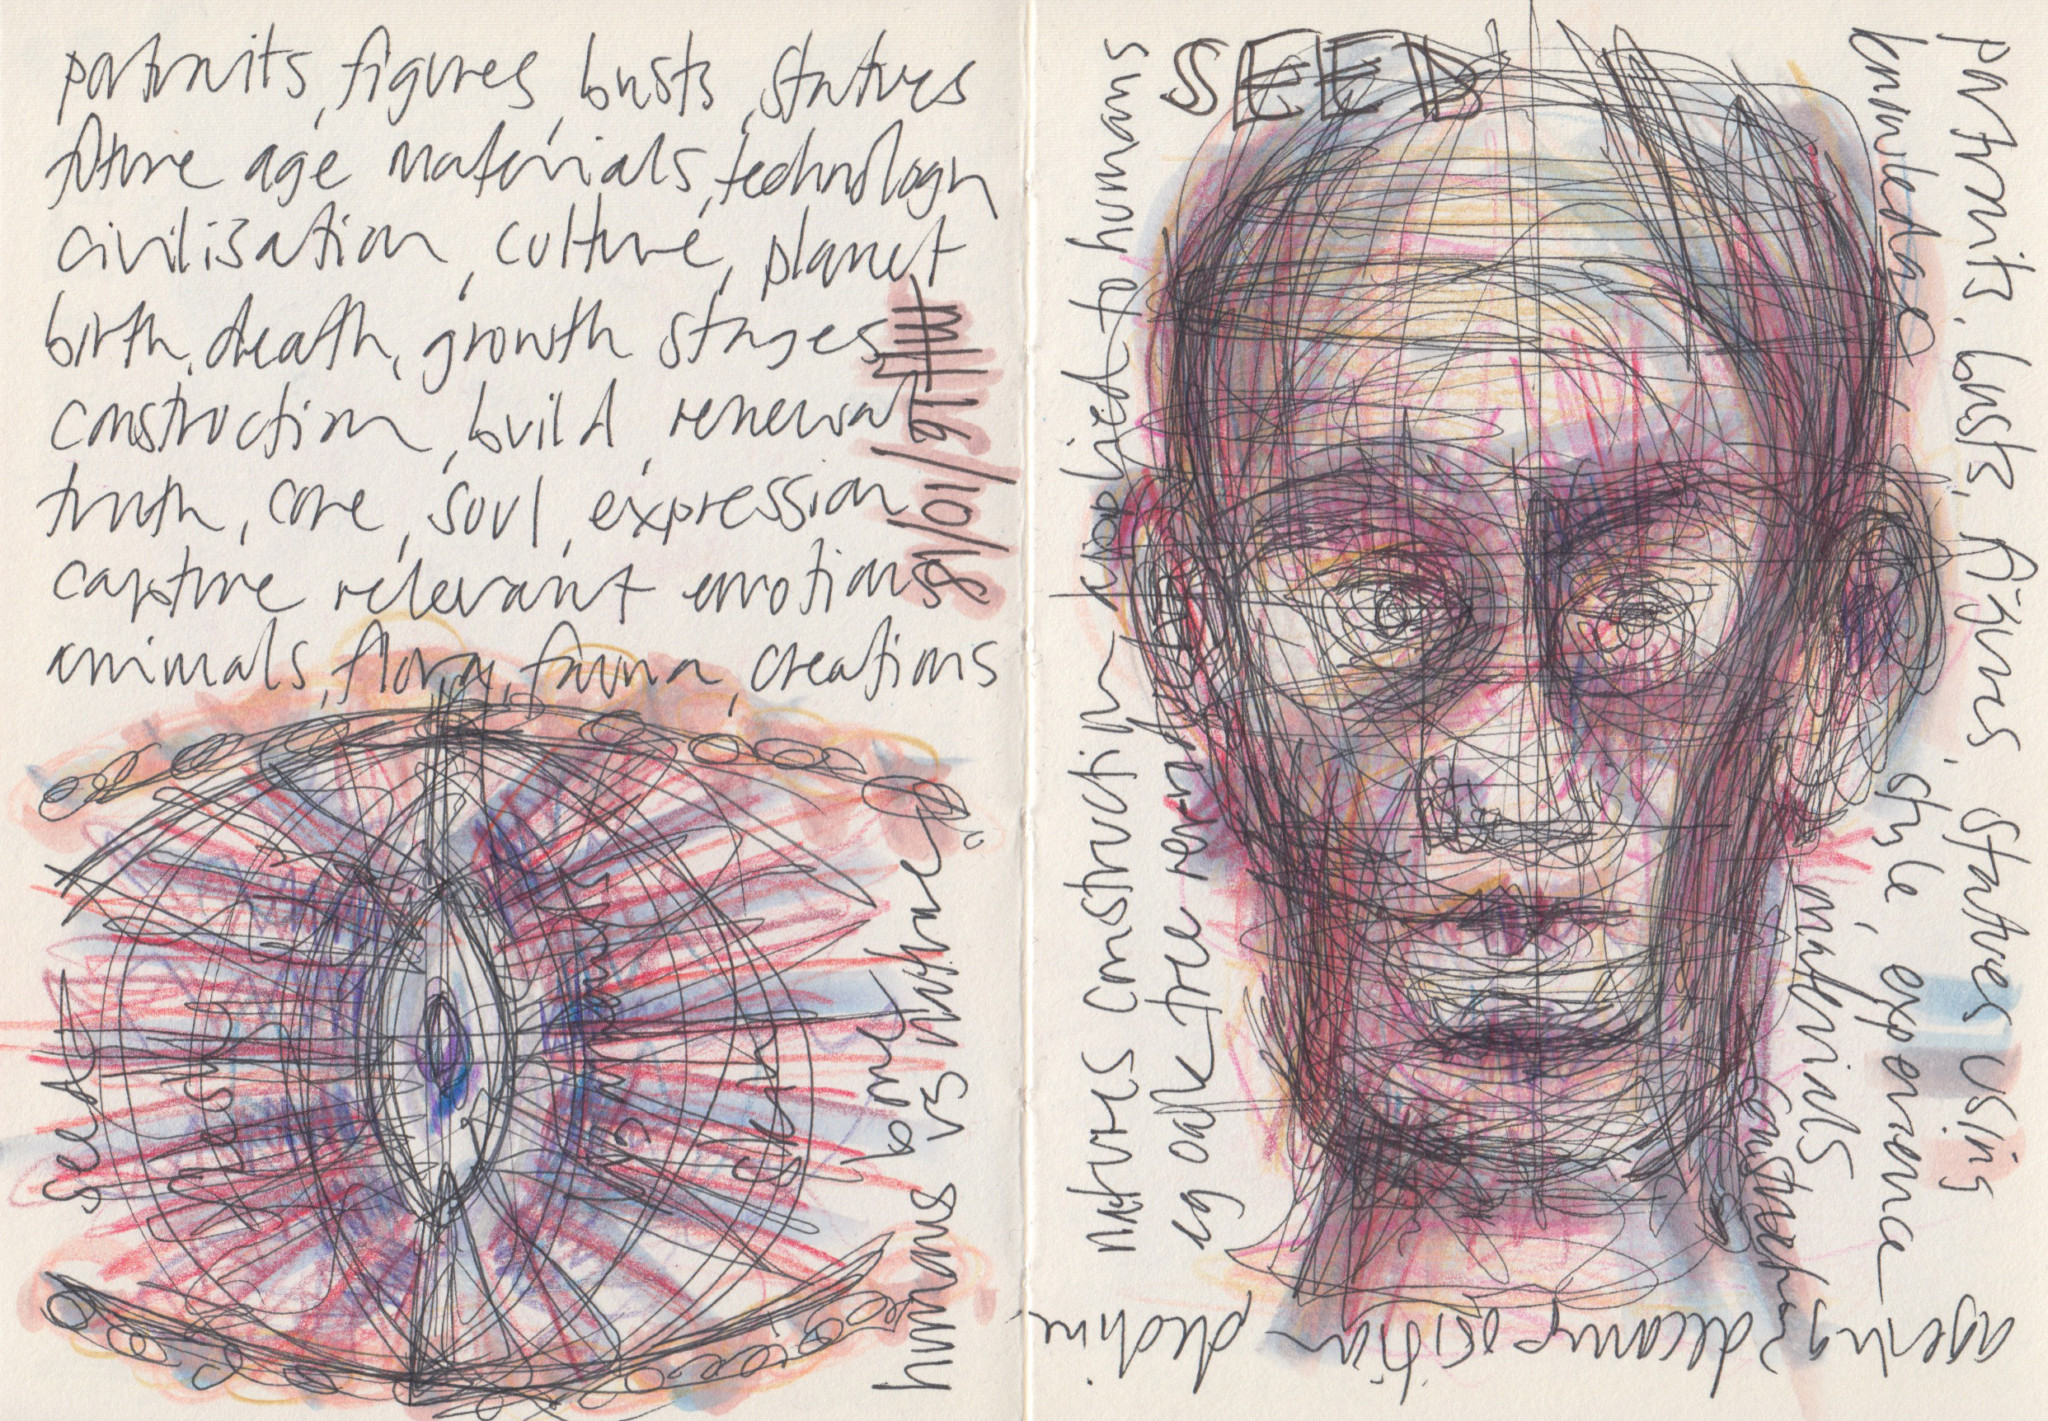 portraits, figures, busts, statues
future age materials, technology
civilisation, culture, planet
birth, death, growth stages
construction, build, renewal
truth, core, soul, expression
capture relevant emotions
animals, flora, fauna, creations
18/01/16
seed
flesh
skin
bone
humans vs nature
SEED
natures construction applied to humans
eg oak tree
portraits, busts, figures, statues using
knowledge, style, experience
materials
construction
ageing decomposition decline